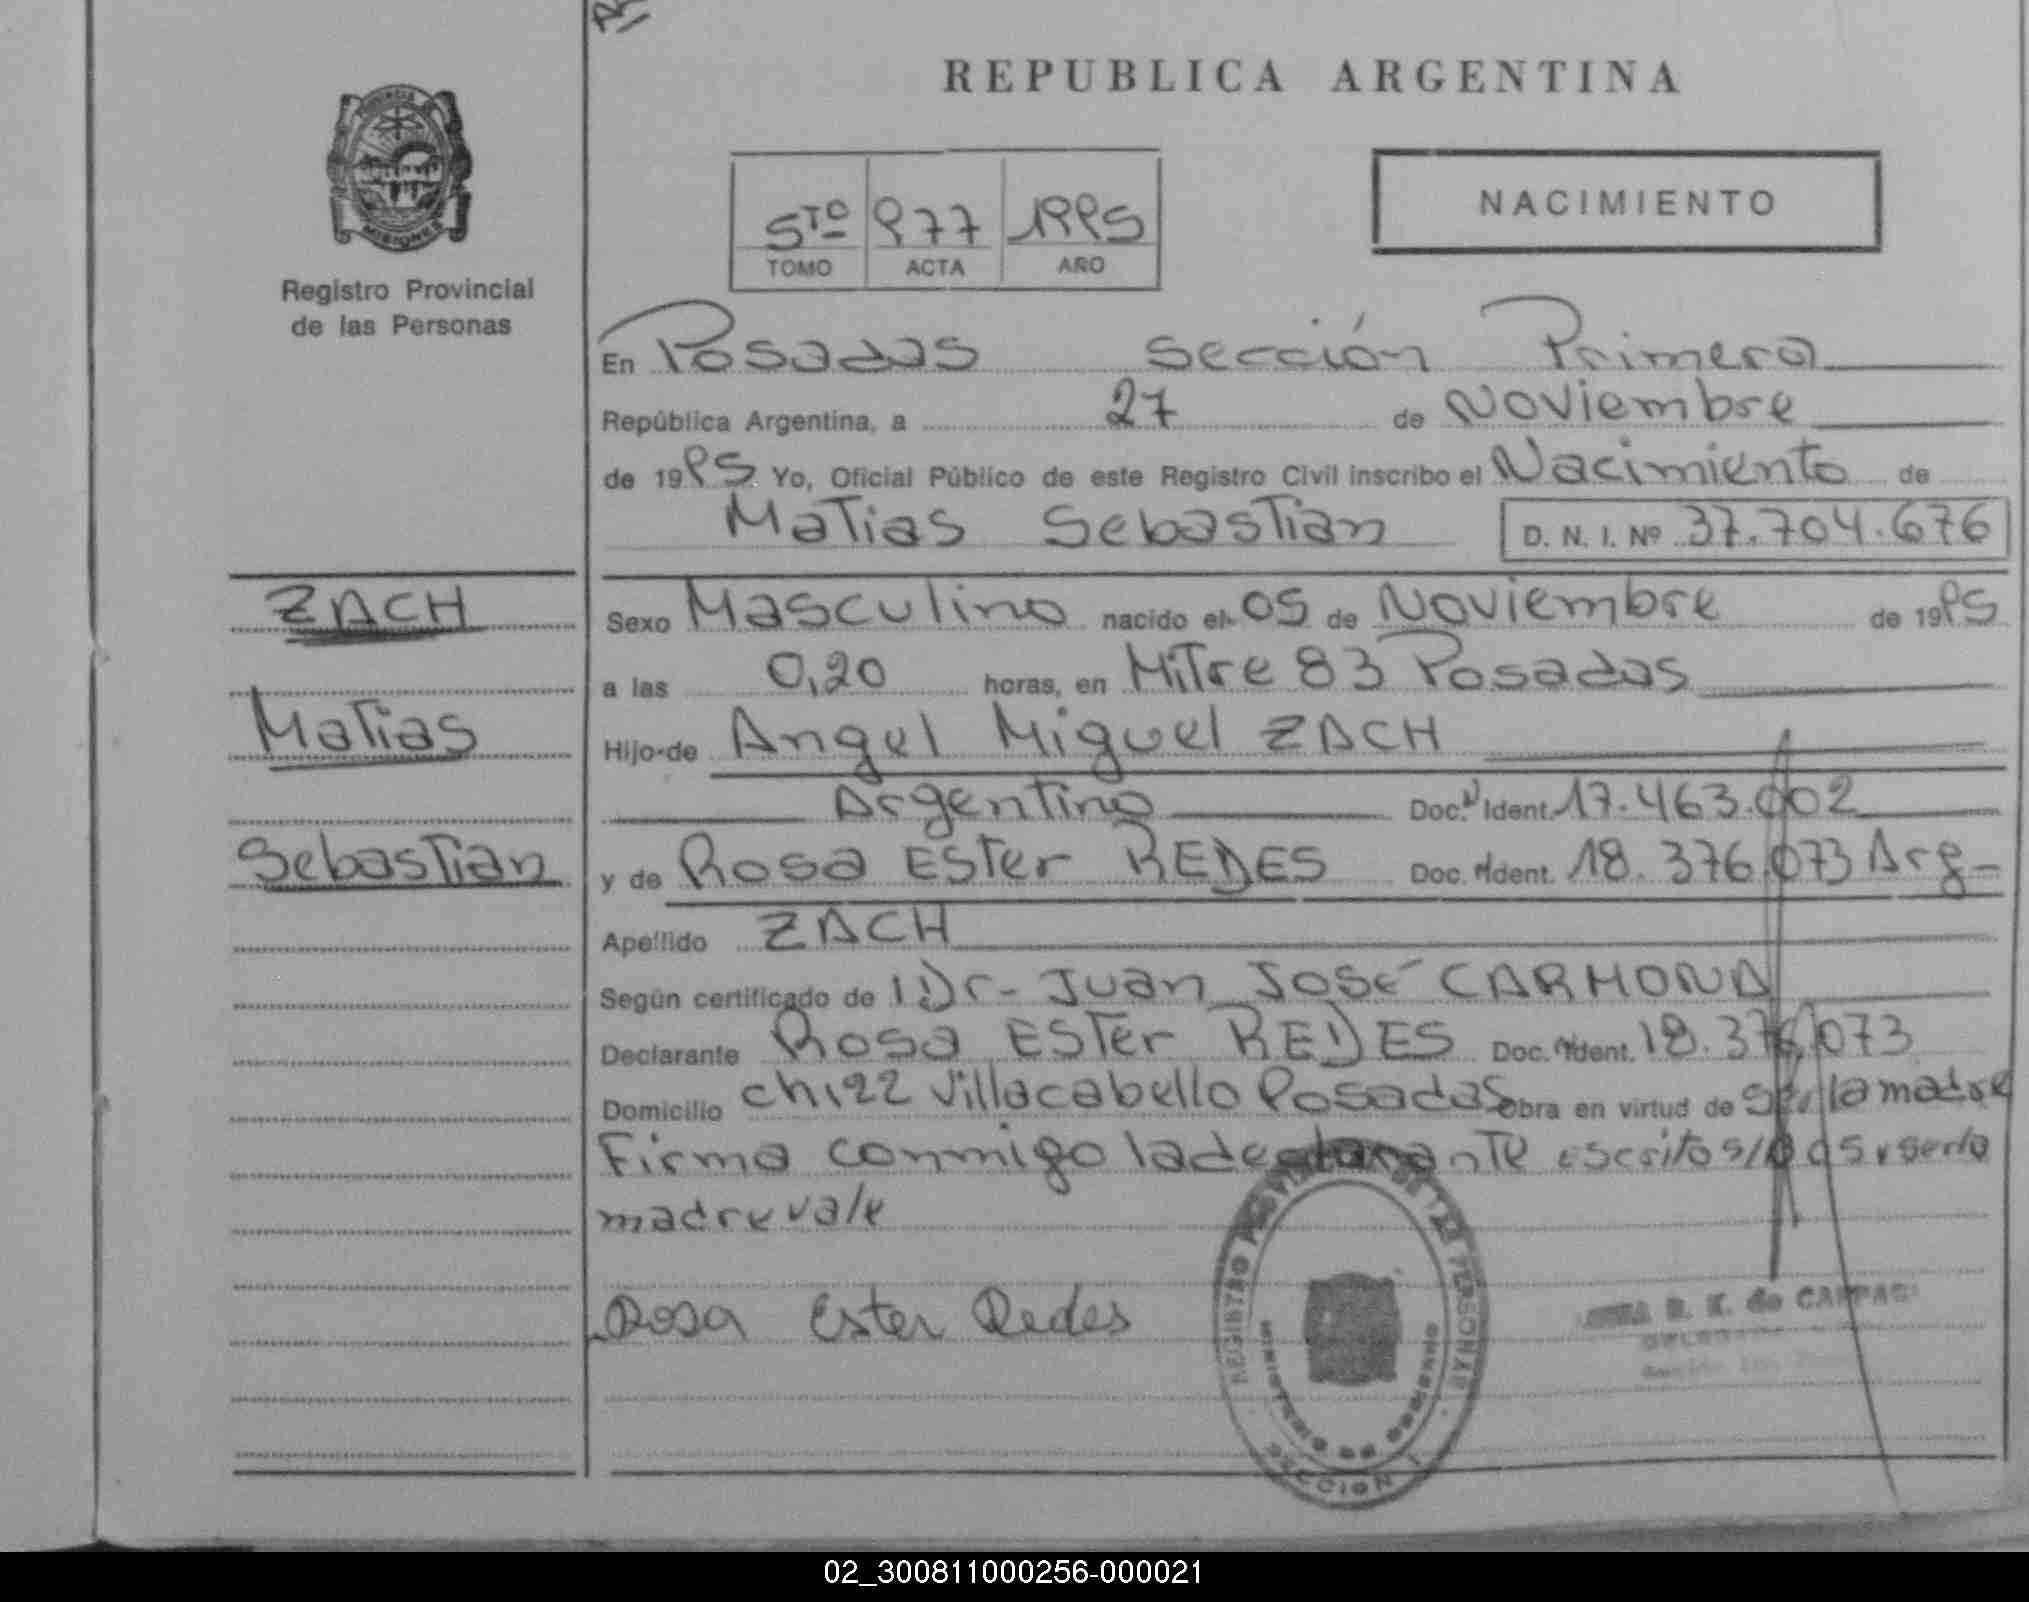 REPUBLICA ARGENTINA
PROVINCIA
MISIONES
Registro Provincial
de las Personas
5TO 977 1995
TOMO ACTA AÑO
NACIMIENTO
En Posadas Sección Primera
República Argentina, a 27 de Noviembre
de 1995 Yo, Oficial Público de este Registro Civil inscribo el Nacimiento de
Matias Sebastian D. N. I. Nº 37.704.676
ZACH
Sexo Masculino nacido el 05 de Noviembre de 1995
a las 0,20 horas, en Mitre 83 Posadas
Matias
Hijo de Angel Miguel ZACH
Argentino Doc. Ident. 17.463.002
Sebastian
y de Rosa Ester REDES Doc. Ident. 18.376.073 Arg-
Apellido ZACH
Según certificado de Dr- Juan José CARMONA
Declarante Rosa Ester REDES Doc. Ident. 18.376.073
Domicilio ch122 Villacabello Posadas obra en virtud de ser la madre
Firma conmigo la declarante escrito s/
madre vale
Rosa Ester Redes
REGISTRO PROVINCIAL DE LAS PERSONAS
MINISTERIO DE GOBIERNO
SECCION 1
R. K. de
02_300811000256-000021